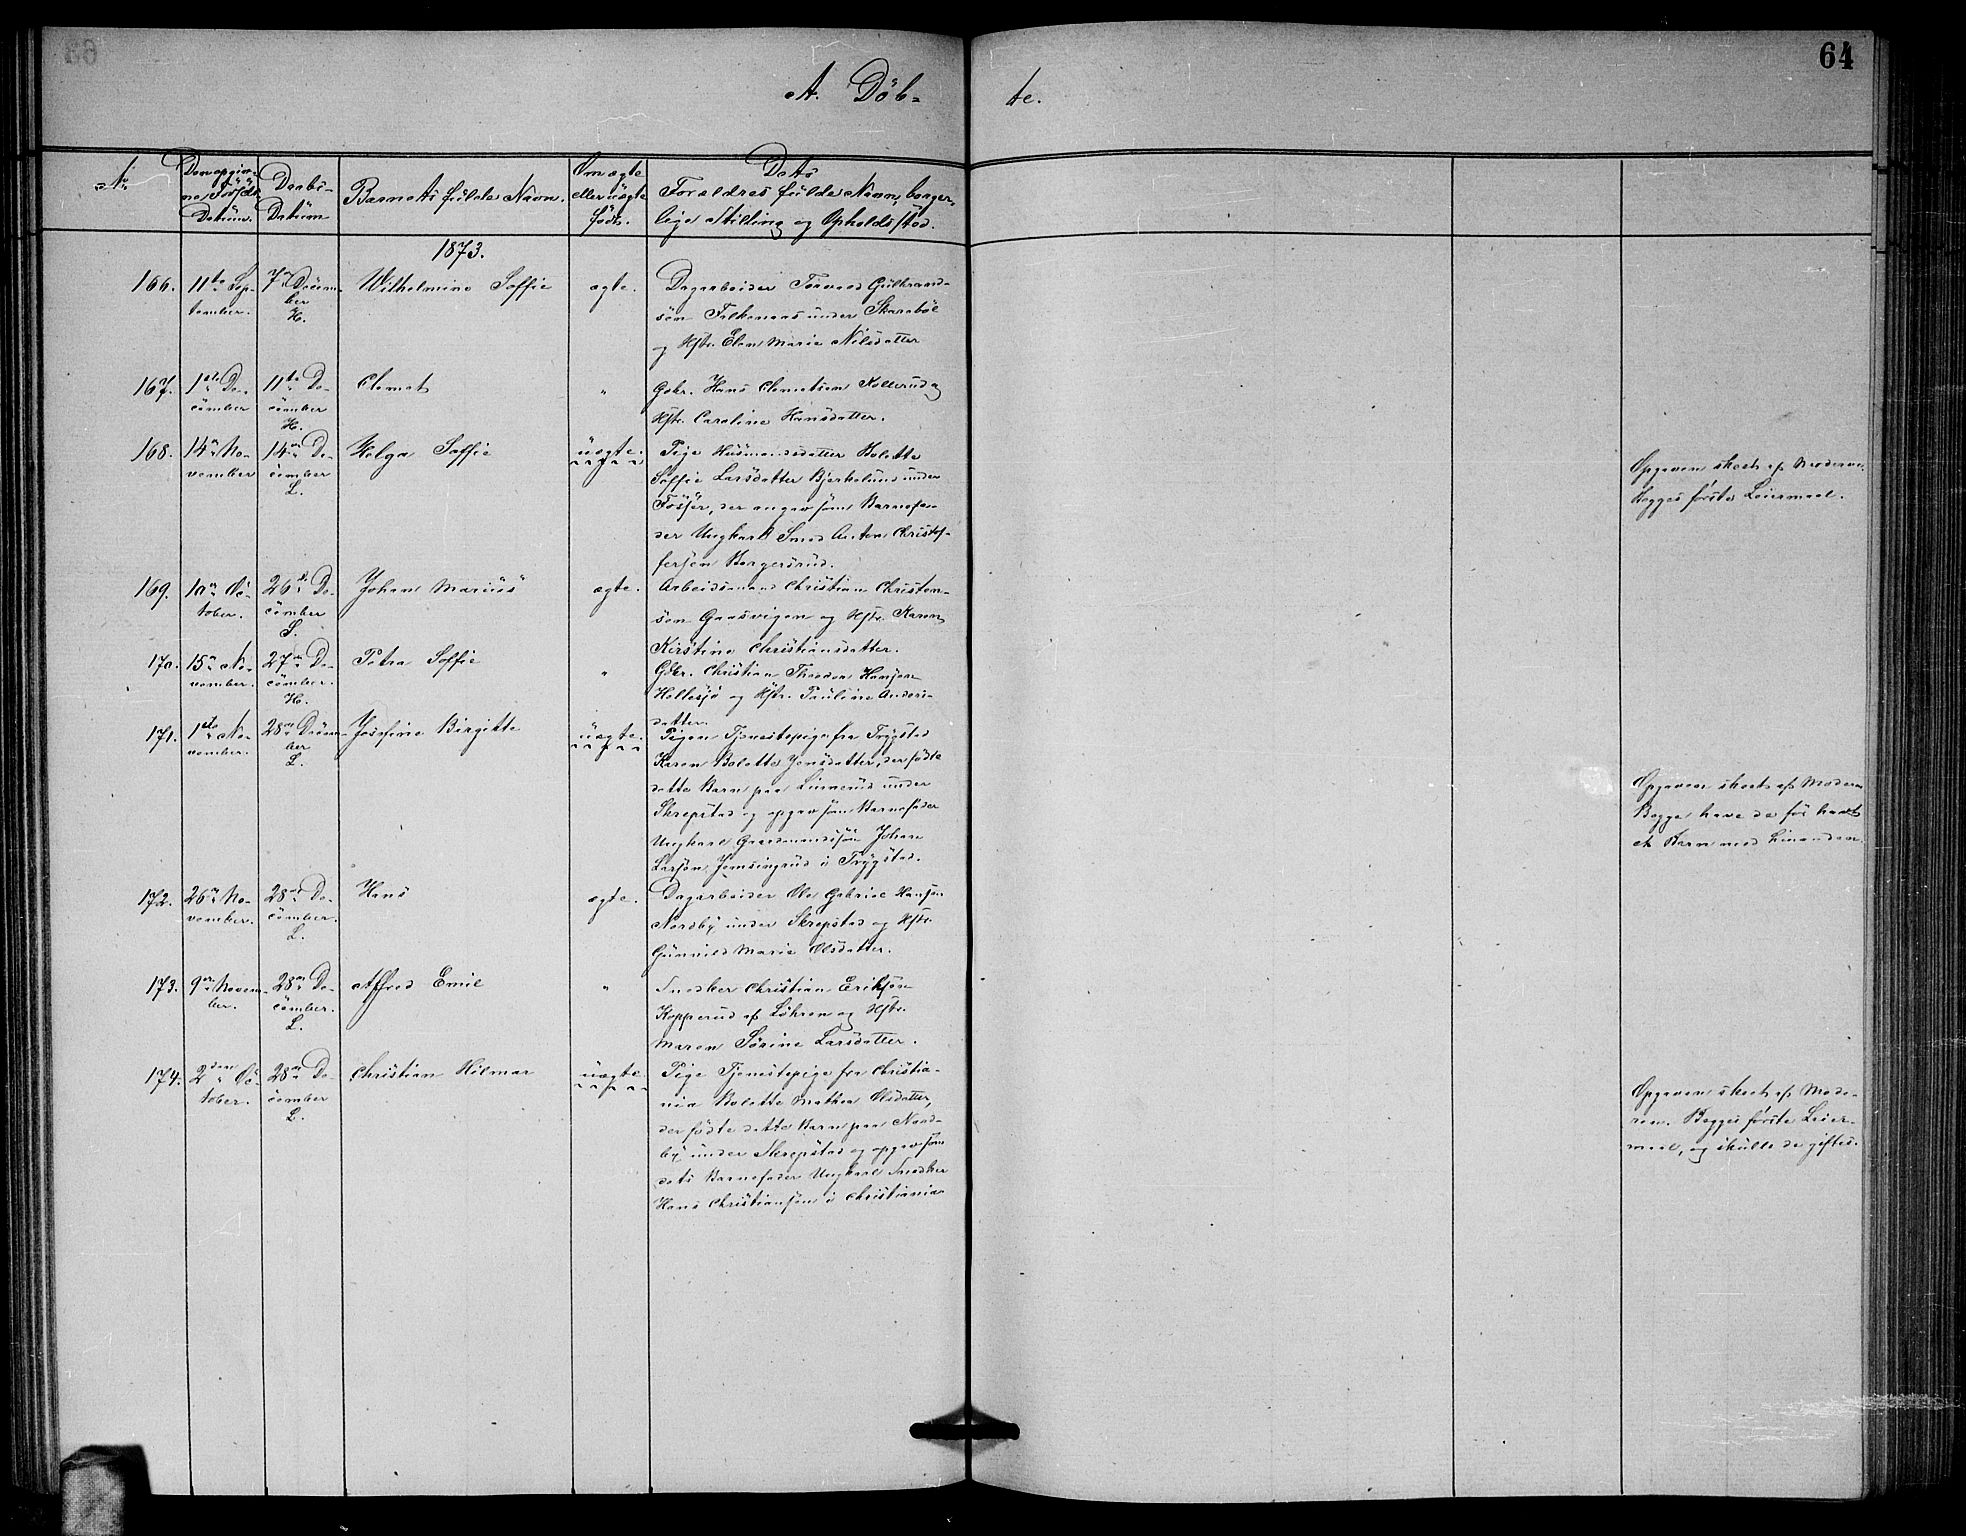 64
A. Döb-
te.
No
Den opgiv-
ne Födsels
Datüm.
Daabs-
Datüm
Barnets fülde Navn.
Om ægte
eller üægte
födt.
Dets
Forældres fülde Navn, borger-
lige Stilling og Opholdssted.
1873.
166.
11te Sep-
tember.
7de Decem-
ber
H.
Wilhelmine Soffie
ægte.
Dagarbeider Torvald Gülbrand-
sön Falkenaas under Skaraböl
og Hstr. Elen Marie Nilsdatter
167.
1ste De-
cember
11te De-
cember
H.
Clemet
"
Gbkr. Hans Clemetsen Kollerud og
Hstr. Caroline Hansdatter.
168.
14de No-
vember
14de De-
cember
L.
Helga Soffie
üægte.
Pige Hüsmandsdatter Bolette
Soffie Larsdatter Bjerkelund under
Fosser, der angav som Barnefa-
der Ungkarl Smed Anton Christof-
fersen Borgersrud.
Opgaven skeet af Moderen.
Begges første Leiermaal.
169.
10de Oc-
tober.
26de De-
cember
S.
Johan Mariüs
ægte.
Arbeidsmand Christian Christen-
sen Gaasvigen og Hstr. Karen
Kirstine Christiansdatter.
170.
15de No-
vember.
27de De-
cember.
H.
Petra Soffie
"
Gbkr. Christian Theodor Hansen
Hellesjö og Hstr. Pauline Anders-
datter.
171.
1ste No-
vember.
28de Decem-
ber
L.
Josefine Birgitte
üægte.
Pigen Tjenestepige fra Trygstad
Karen Bolette Jensdatter, der födte
dette Barn paa Linnerud under
Skrepstad og opgav som Barnefader
Ungkarl Gaardmandssön Johan
Larsen Jemsingrud i Trygstad.
Opgaven skeet af Moderen
Begge have de før havt
et Barn med hinanden.
172.
26de No-
vember.
28de De-
cember.
L.
Hans
ægte.
Dagarbeider Ole Gabriel Hansen
Nordby under Skrepstad og Hstr.
Günnild Marie Olsdatter.
173.
9de Novem-
ber.
28de De-
cember.
L.
Alfred Emil
"
Snedker Christian Eriksen
Kopperud af Löhren og Hstr.
Maren Sörine Larsdatter.
174.
2den Oc-
tober.
28de De-
cember
L.
Christian Hilmar
üægte
Pige Tjenestepige fra Christia-
nia Bolette Mathea Olsdatter,
der födte dette Barn paa Nord-
by under Skrepstad og opgav som
dets Barnefader Ungkarl Snedker
Hans Christiansen i Christiania
Opgaven skeet af Mode-
ren. Begges første Leier-
maal, og skulle de giftes.